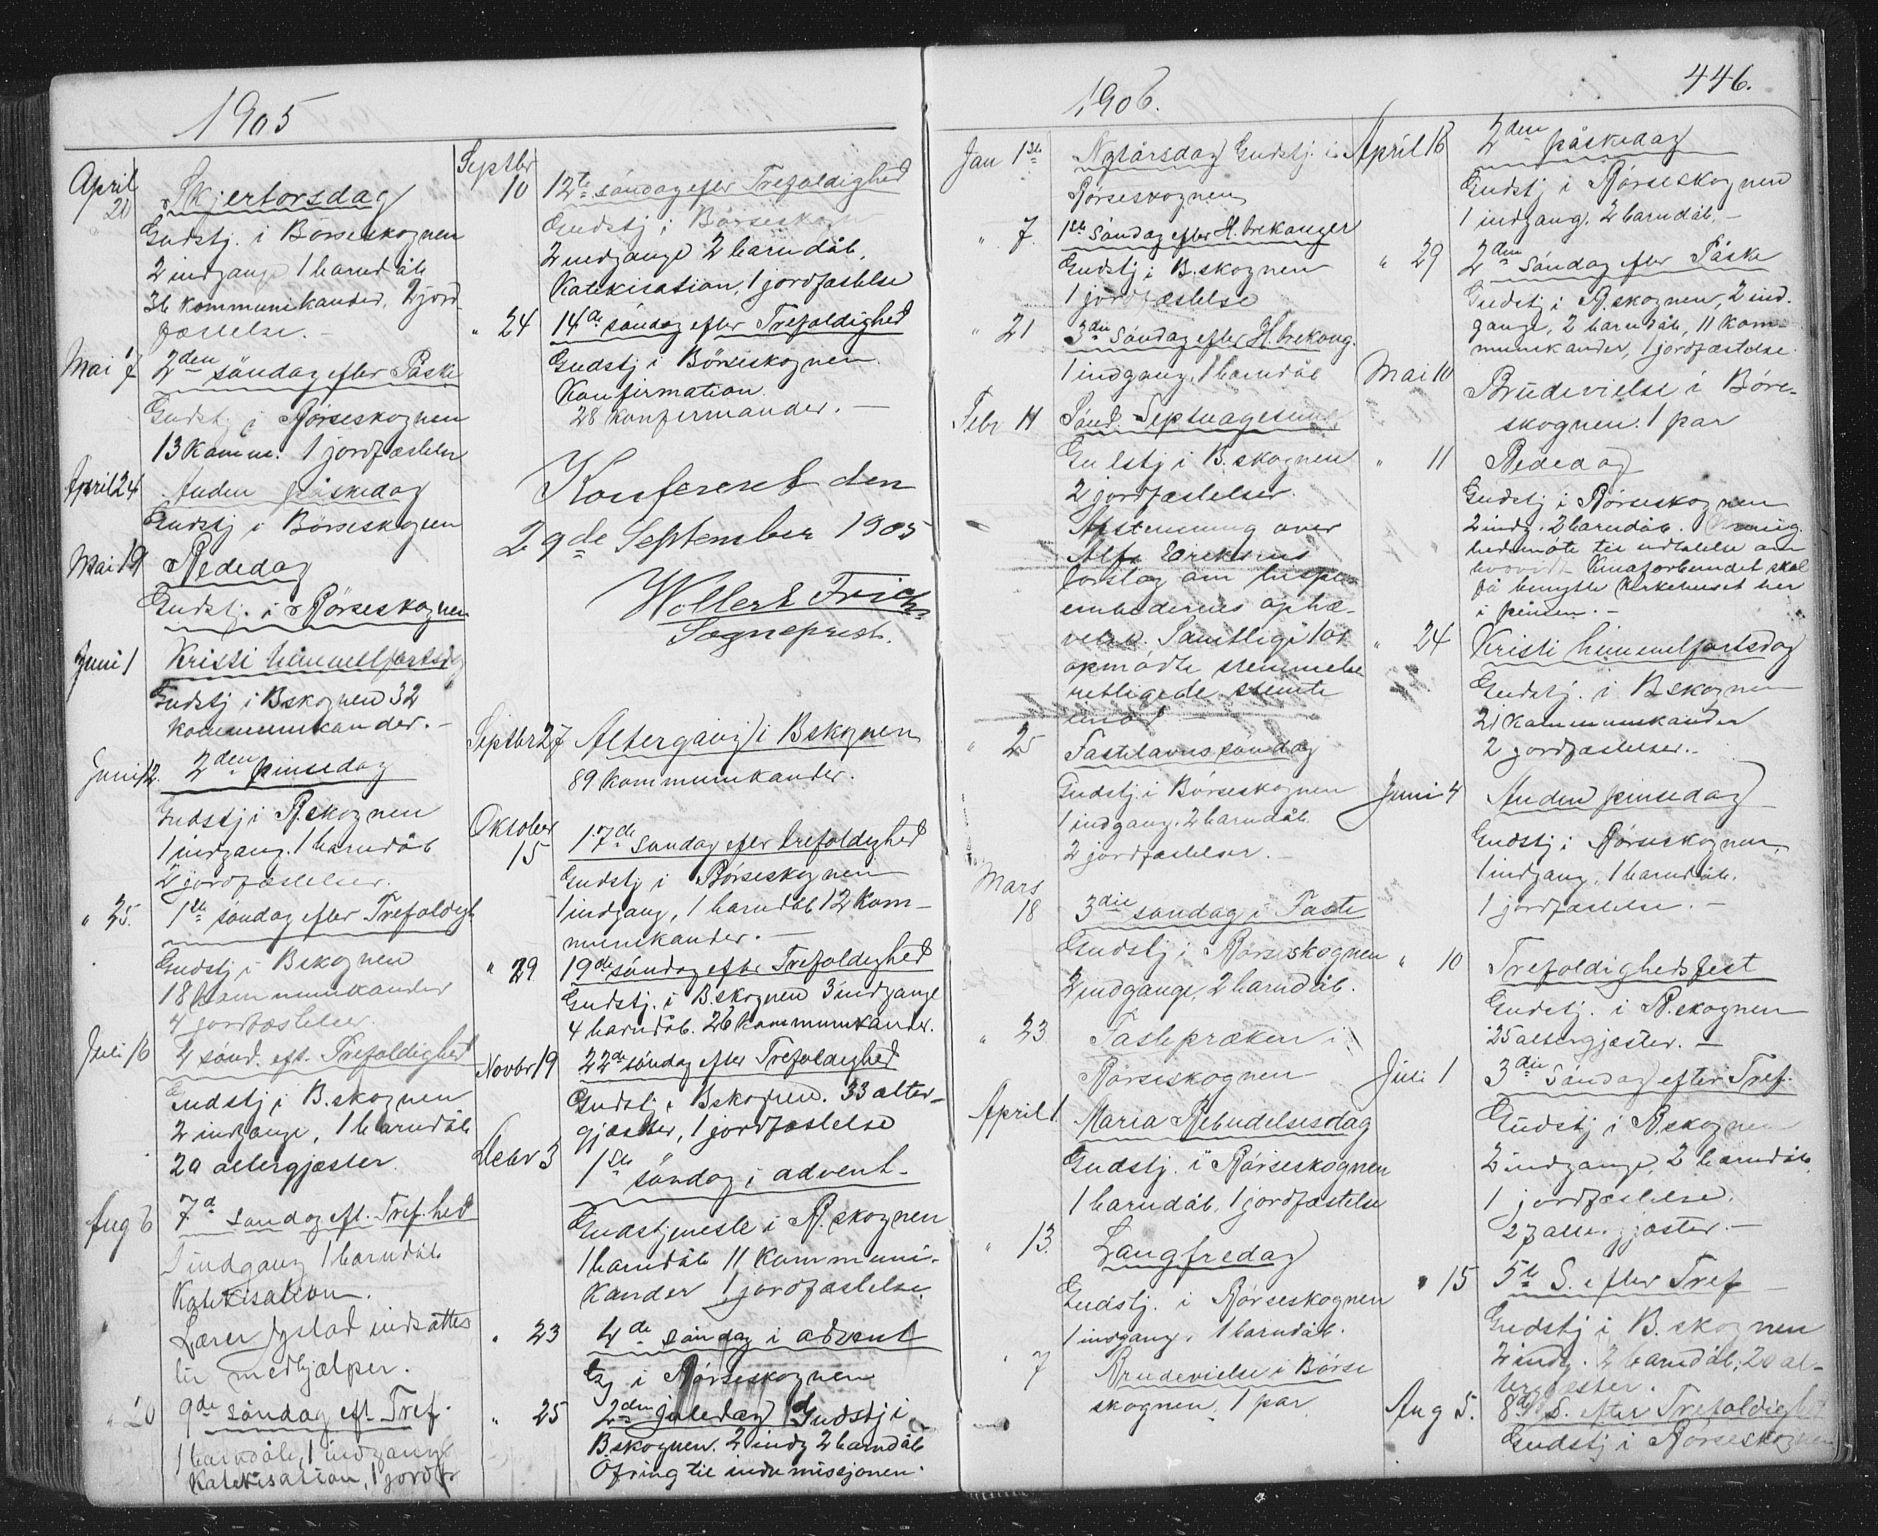 1905
April 20 Skjertorsdag
Gudstj. i Börseskognen
2 indgange 1 barndåb
36 kommunikander, 2 jord
fæstelse.
Mai 7 2den söndag efter Påske
Gudstj i Börseskognen
13 Komm. 1 jordfæstelse
April 24 Anden påskedag
Gudstj i Börseskognen
Mai 19 Bededag
Gudstj. i Börseskognen
Juni 1 Kristi himmelfartsdg
Gudstj i Bskognen 32
kommunikander.
Juni 12. 2den pinsedag
Gudstj i Bskognen
1 indgang. 1 barndåb
2 jordfæstelser.
" 25. 1ste söndag efter Trefoldigh
Gudstj i Bskognen
18 kommunikander
4 jordfæstelser.
Juli 16 4 sönd. eft. Trefoldighed
Gudstj i B.skognen
2 indgange, 1 barndåb
20 altergjæster.
Aug 6 7d söndag eft. Tref.hed
1 indgang 1 barndåb
Katekisation.
Lærer Jystad indsattes
til medhjælper.
" 20 9de söndag eft Tref.
1 barndåb, 1 indgang
Katekisation, 1 jordf
Septbr 10 12te söndag efter Trefoldighed
Gudstj i Börseskogn
2 indgange 2 barndåb,
Katekisation, 1 jordfæstelse
" 24 14de söndag efter Trefoldighed
Gudstj i Börseskognen.
Konfirmation.
28 konfirmander.
Konfereret den
29de September 1905
Wollert
Sogneprest.
Septbr 27 Altergang i Bskognen
89 kommunikander.
Oktober 15 17de söndag efter trefoldighed
Gudstj i Börseskognen
1 indgang, 1 barndåb 12 kom-
munikander.
" 29 19de söndag efter Trefoldighed
Gudstj. i B.skognen 3 indgange
4 barndåb. 26 kommunikander.
Novbr 19 22de söndag efter Trefoldighed
Gudstj i Bskognen. 33 alter-
gjæster, 1 jordfæstelse
Decbr 3 1ste söndag i advent
Gudstjeneste i B.skognen
1 barndåb 11 kommuni-
kander 1 jordfæstelse
" 23 4de söndag i advent
i Börseskognen
" 25 2den juledag Gudstj i
B.skognen. 2 indg 2 barndåb
Ofring til indremissjonen.
1906.
446.
Jan 1ste Nytårsdag Gudstj. i
Börseskognen
" 7. 1ste Söndag efter H. trekonger
Gudstj i B.skognen
1 jordfæstelse
" 21 3die Söndag efter H. trekong.
1 indgang. 1 barndåb
Febr 11 Sönd. Septuagesima
Gudstj i B.skognen
2 jordfæstelser.
Afstemning over
Alfr Eriksens
forslag om bispe-
embedernes ophæ-
velse. Samtlige 101
opmödte stemmebe
rettigede stemte
imod
" 25 Fastelavnssöndag
Gudstj. i Börseskognen
1 indgang. 2 barndåb
2 jordfæstelser.
Mars 18 3die söndag i Faste
Gudstj i Börseskognen
2 indgange, 2 barndåb.
" 23 Fastepræken i
Börseskognen
April 1 Maria Bebudelsesdag
Gudstj. i Börseskognen
1 barndåb, 1 jordfæstelse
" 13. Langfredag
Gudstj. i Börseskognen
1 indgang. 1 barndåb.
" 7 Brudevielse i Börse
skognen. 1 par
April 16 2den påskedag
Gudstj i Börseskognen
1 indgang. 2 barndåb.
" 29 2den Söndag efter Påske
Gudstj i B.skognen, 2 ind.
gange, 2 barndåb, 11 kom-
munikander, 1 jordfæstelse.
Mai 10 Brudevielse i Börse-
skognen. 1 par
" 11 Bededag
Gudstj i Börseskognen
2 indg. 2 barndåb. Menig.
hedsmöte til udtalelse om
hvorvidt Kinaforbundet skal
få benytte kirkehuset her
i pinsen.
" 24 Kristi himmelfartsdag
Gudstj. i Bskognen
21 kommunikander
2 jordfæstelser.
Juni 4 Anden pinsedag
Gudstj i Börseskognen,
1 indgang, 1 barndåb.
1 jordfæstelse.
" 10 Trefoldighedsfest
Gudstj. i B.skognen
25 altergjæster.
Juli 1 3die Söndag efter Tref.
Gudstj i B.skognen
2 indgange, 2 barndåb,
1 jordfæstelse.
27 altergjæster.
" 15 5te S. efter Tref
Gudstj i B.skognen
2 indg. 2 barndåb, 20 al-
tergjæster.
Aug 5. 8de S. efter Trefoldighed
Gudstj i Börseskognen